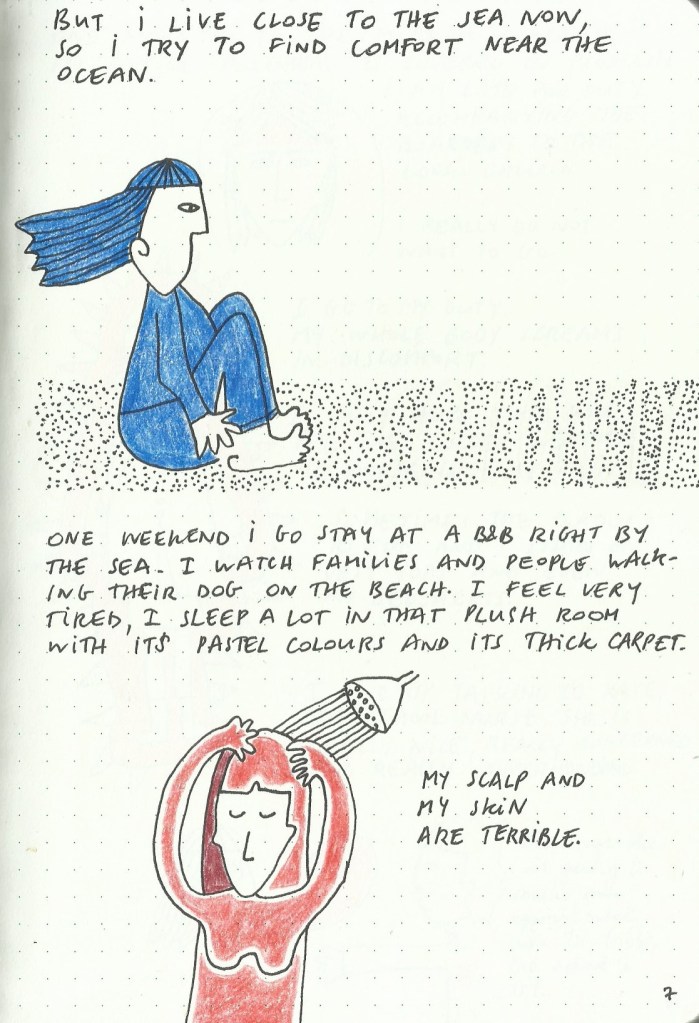 BUT I LIVE CLOSE TO THE SEA NOW,
SO I TRY TO FIND COMFORT NEAR THE
OCEAN.
SO LONELY
ONE WEEKEND I GO STAY AT A B&B RIGHT BY
THE SEA. I WATCH FAMILIES AND PEOPLE WALK-
ING THEIR DOG ON THE BEACH. I FEEL VERY
TIRED, I SLEEP A LOT IN THAT PLUSH ROOM
WITH ITS PASTEL COLOURS AND ITS THICK CARPET.
MY SCALP AND
MY SKIN
ARE TERRIBLE.
7